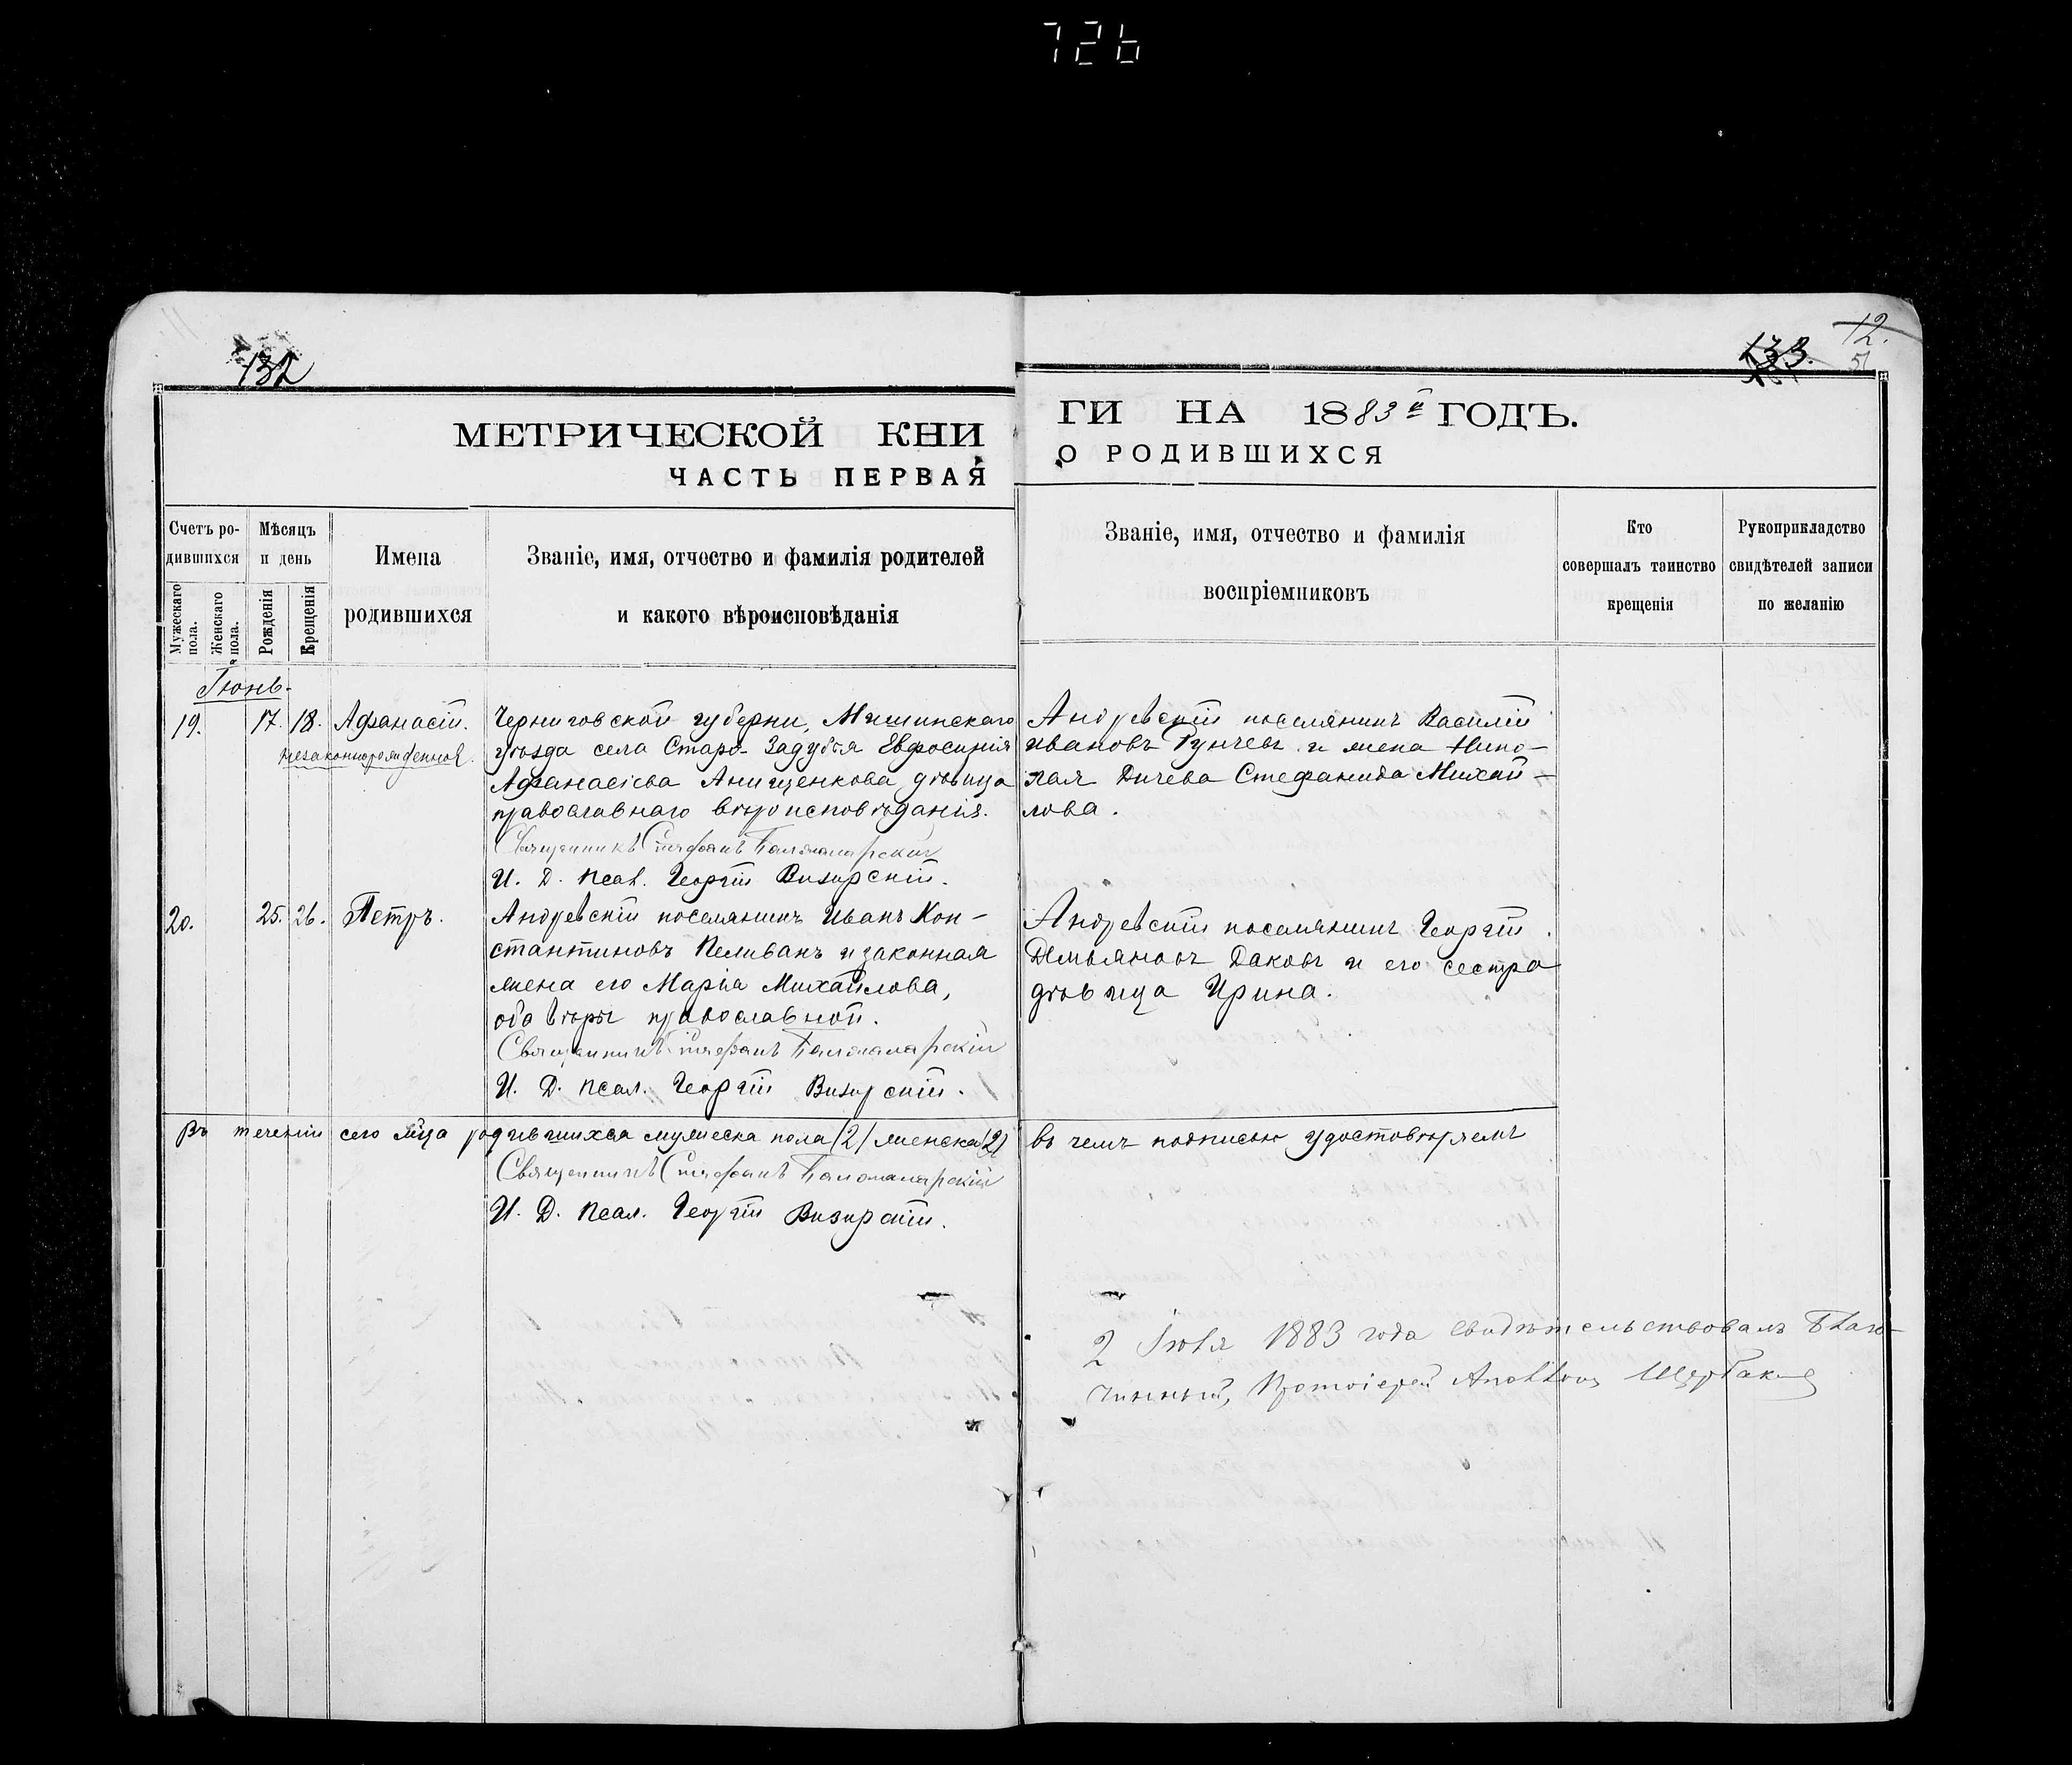 726
132
133.
12.
51
МЕТРИЧЕСКОЙ КНИ
ГИ НА 1883й ГОДЪ.
ЧАСТЬ ПЕРВАЯ
О РОДИВШИХСЯ
Счетъ ро-
дившихся
Мужескаго пола.
Женскаго пола.
Мѣсяцъ
и день
Рожденія
Крещенія
Имена
родившихся
Званіе, имя, отчество и фамилія родителей
и какого вѣроисповѣданія
Званіе, имя, отчество и фамилія
воспріемниковъ
Кто
совершалъ таинство
крещенія
Рукоприкладство
свидѣтелей записи
по желанію
Іюнь.
19. 17. 18. Афанасій.
незаконнорожденной.
Черниговской губерни, Мглинскаго
уѣзда села Старо-Задубья Евфросинія
Афанасіева Анищенкова дѣвица
православнаго вѣроисповѣданія.
Священникъ Стефанъ
И. Д. Псал. Георгій Визирскій.
Андревскій поселянинъ Василій
Ивановъ Гунчевъ и жена Нико-
лая Дичева Стефанида Михай-
лова.
20. 25. 26. Петръ.
Андревскій поселянинъ Иванъ Кон-
стантиновъ Пеливанъ и законная
жена его Марія Михайлова,
оба вѣры православной.
Священникъ Стефанъ
И. Д. Псал. Георгій Визирскій.
Андревскій поселянинъ Георгій
Демьяновъ Даковъ и его сестра
дѣвица Ирина.
Въ теченіи сего мѣца родившихся мужеска пола /2/ женска /2/
въ чемъ подписью удостовѣряемъ
Священникъ Стефанъ
И. Д. Псал. Георгій Визирскій.
2 Іюля 1883 года свидѣтельствовалъ Благо-
чинный, Протоіерей